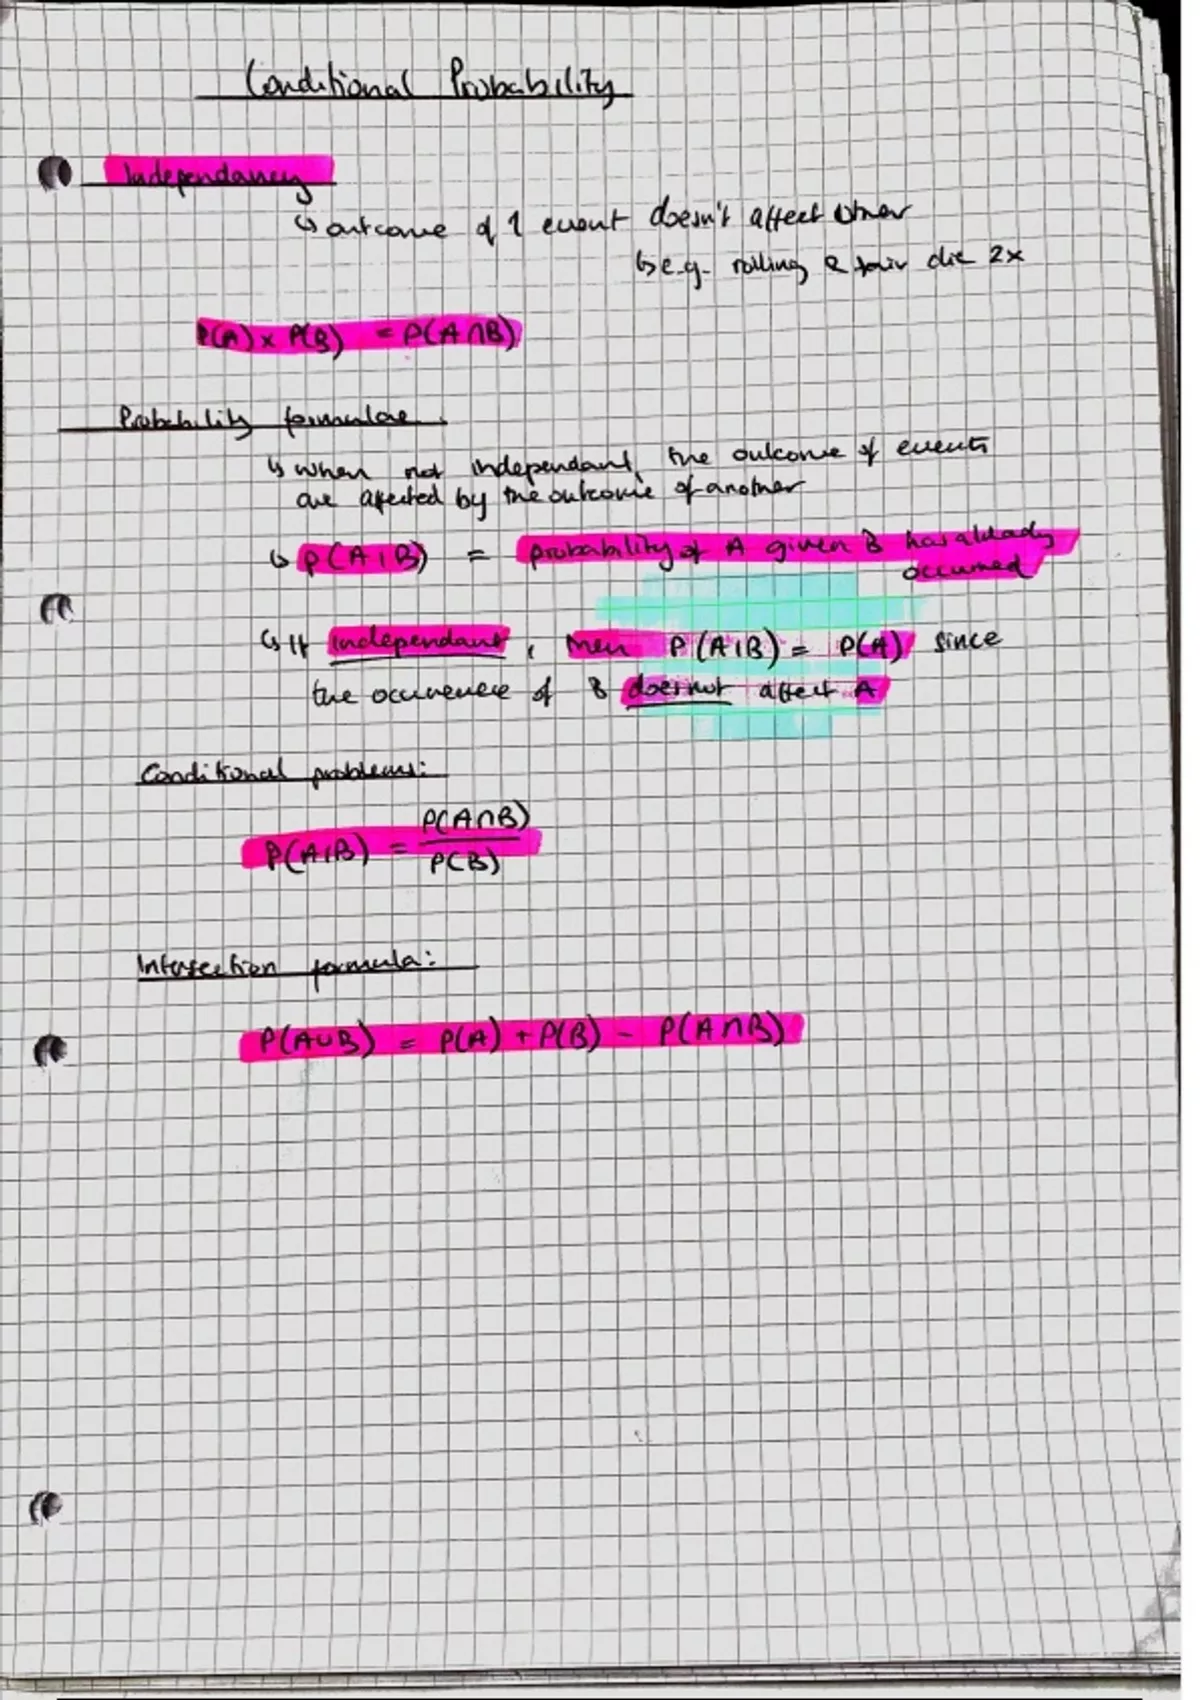 Conditional Probability
Independancy
↳ outcome of 1 event doesn't affect other
↳ e.g. rolling a fair die 2x
P(A) x P(B) = P(A∩B)
Probability formulae.
↳ when not independant, the outcome of events
are affected by the outcome of another
↳ P(A|B) = probability of A given B has already
occurred
↳ If independant, then P(A|B) = P(A) since
the occurence of B does not affect A
Conditional problems:
P(A|B) = P(A∩B)
P(B)
Intersection formula:
P(A∪B) = P(A) + P(B) - P(A∩B)